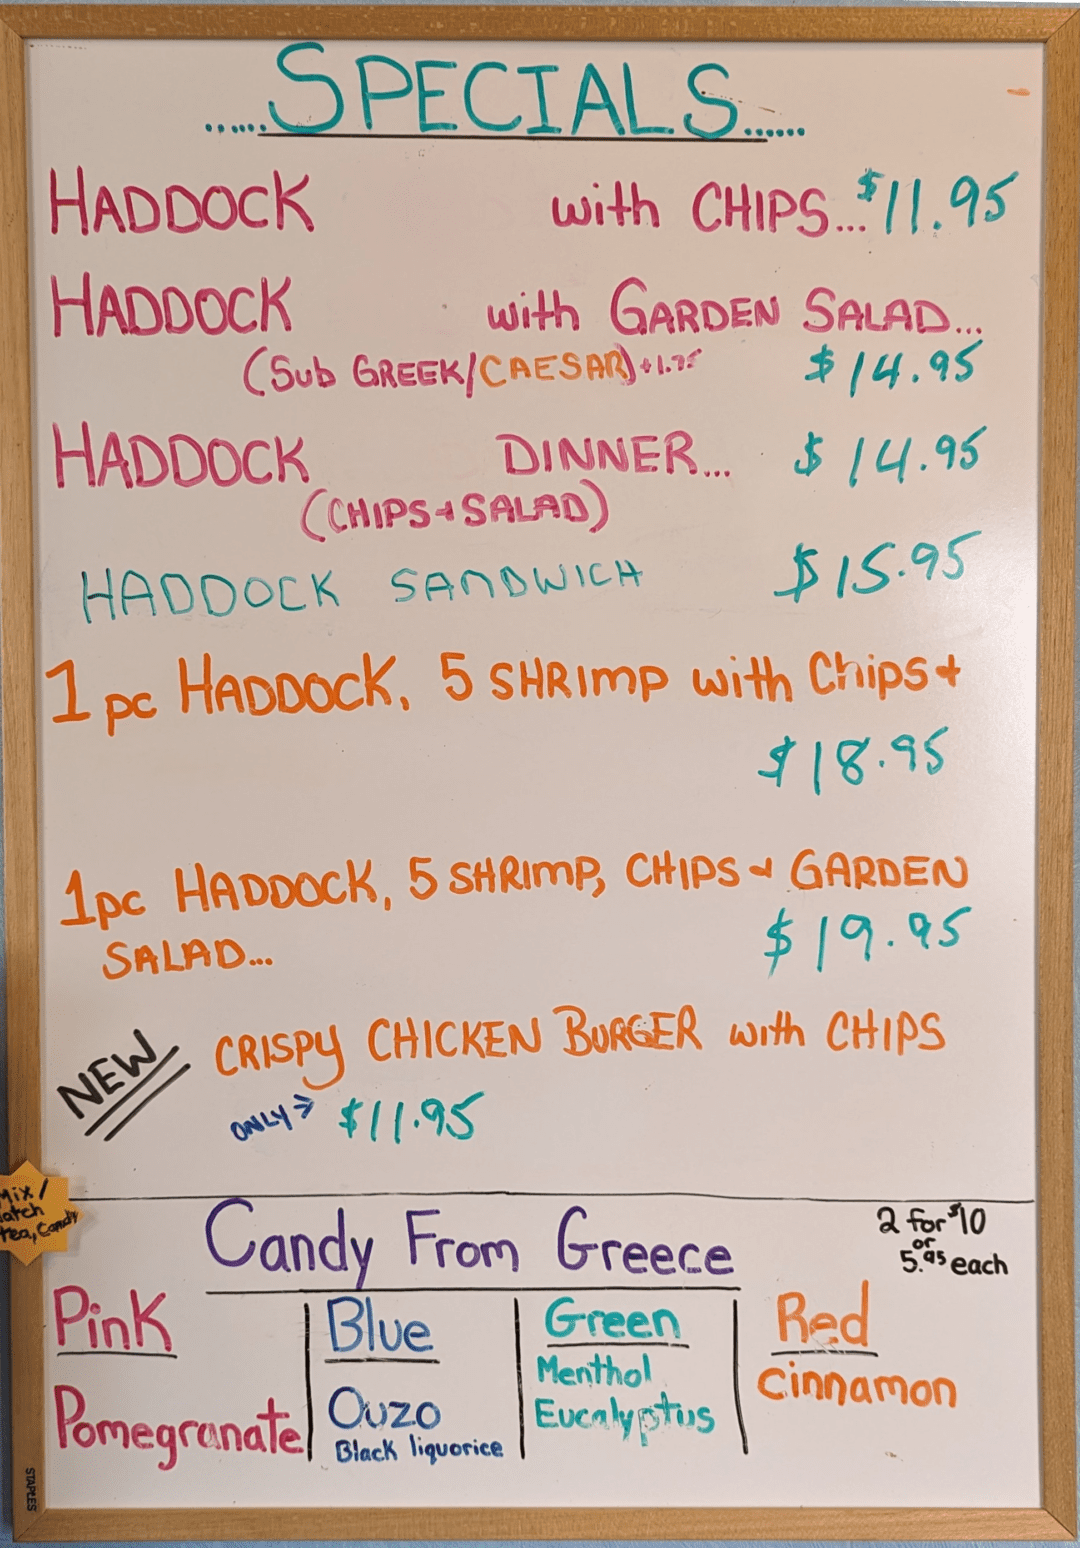 ......SPECIALS......
HADDOCK with CHIPS...$11.95
HADDOCK with GARDEN SALAD...
(Sub GREEK/CAESAR)+1.75 $14.95
HADDOCK DINNER... $14.95
(CHIPS + SALAD)
HADDOCK SANDWICH $15.95
1 pc HADDOCK, 5 SHRIMP with Chips +
$18.95
1pc HADDOCK, 5 SHRIMP, CHIPS + GARDEN
SALAD... $19.95
NEW CRISPY CHICKEN BURGER with CHIPS
ONLY > $11.95
Mix/
atch
tea, Candy
Candy From Greece
2 for $10
or
5.95 each
Pink
Pomegranate
Blue
Ouzo
Black liquorice
Green
Menthol
Eucalyptus
Red
Cinnamon
STAPLES